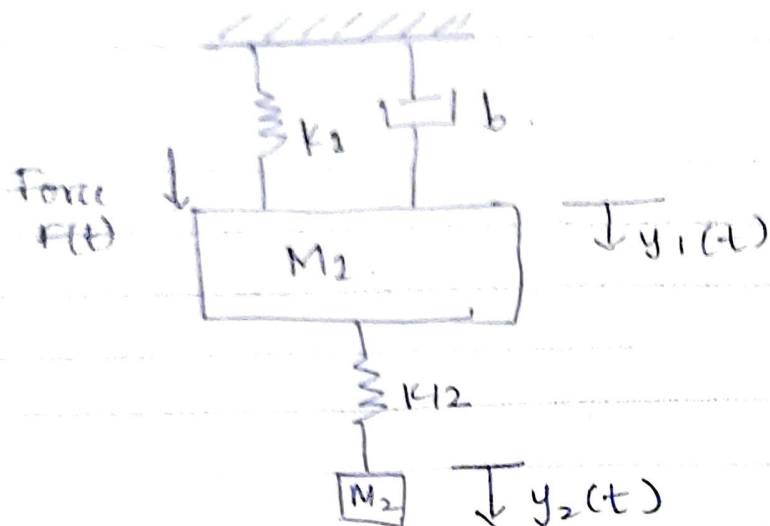 K1
b
Force
F(t)
M1
y1(t)
K12
M2
y2(t)